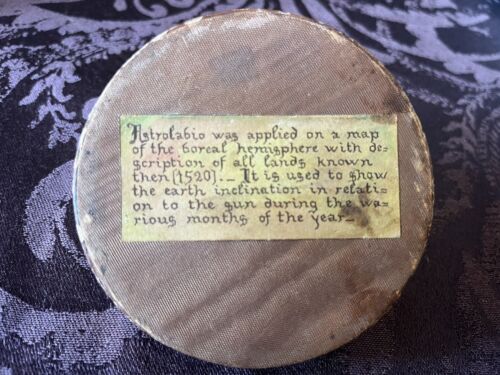 Astrolabio was applied on a map
of the boreal hemisphere with de-
scription of all lands known
then (1520)._ It is used to show
the earth inclination in relati-
on to the gun during the wa-
rious months of the year_